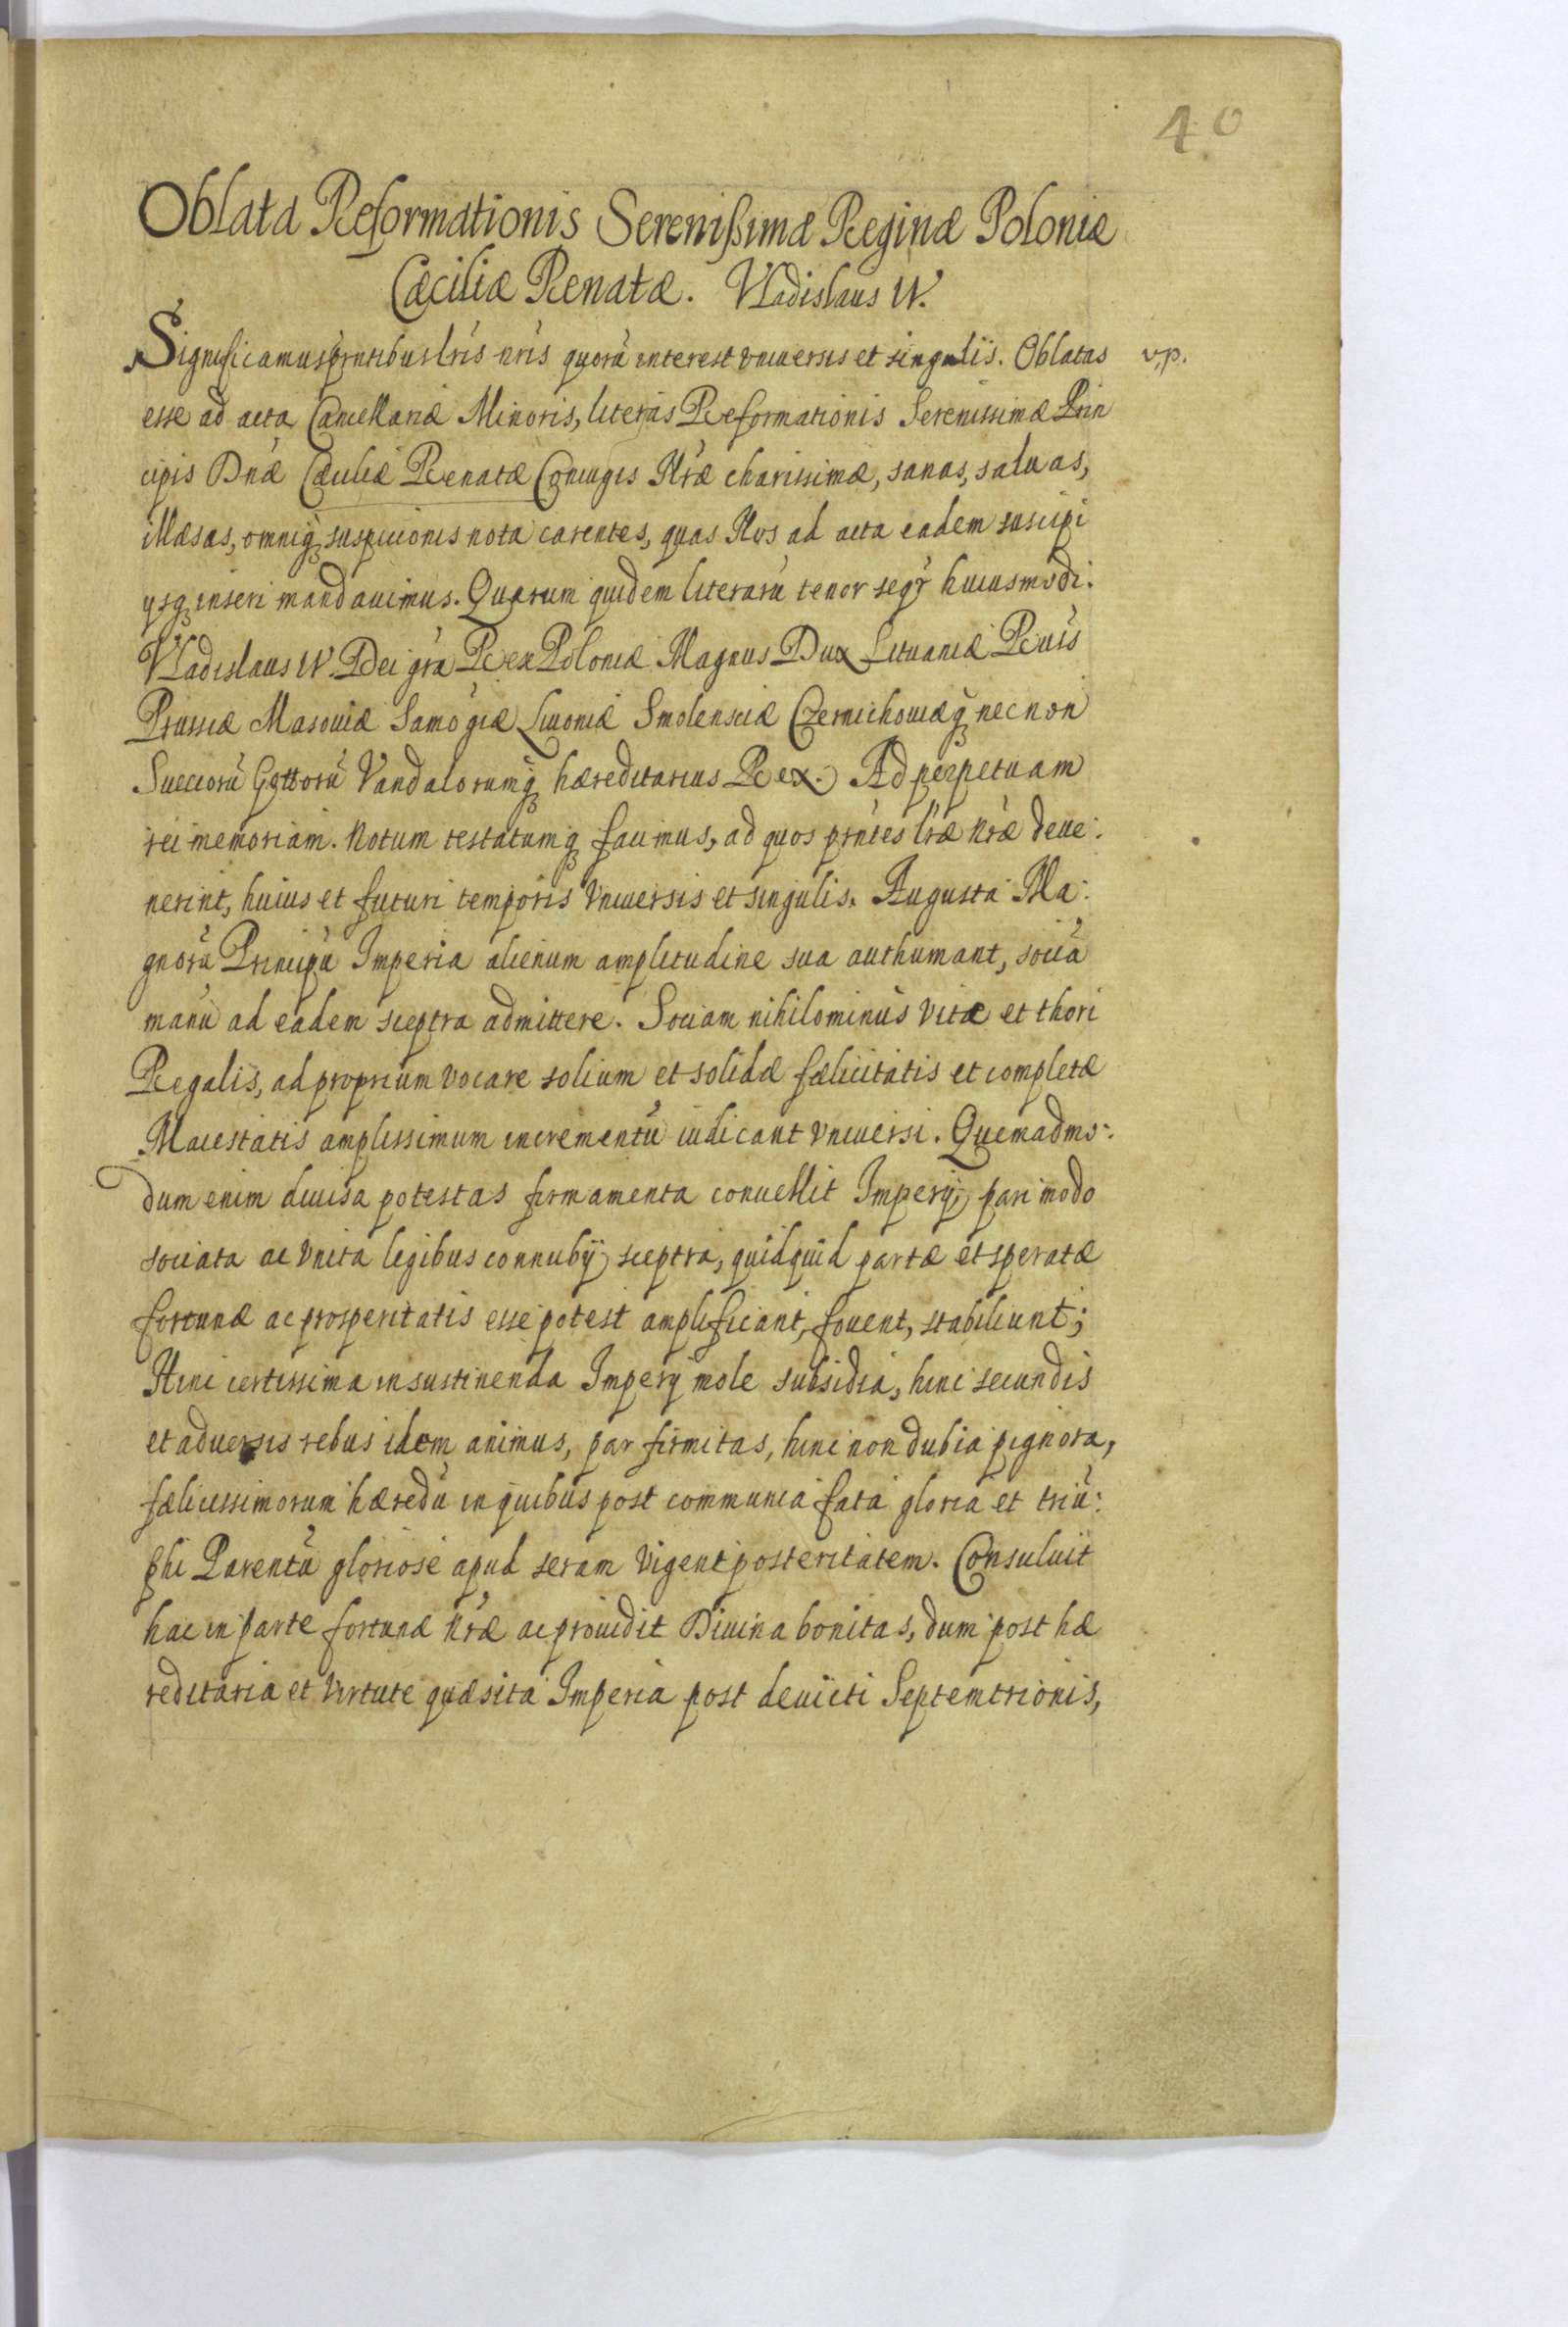 40
Oblata Reformationis Serenißimæ Reginæ Poloniæ
Cæciliæ Renatæ. Vladislaus IV.
Significamus prntibus lris nris quorũ interest vniuersis et singulis. Oblatas v.p.
esse ad acta Cancellariæ Minoris, literas Reformationis Serenissimæ Prin
cipis Dnæ Cæciliæ Renatæ Coniugis Nræ charissimæ, sanas, saluas,
illæsas, omniq; suspicionis nota carentes, quas Nos ad acta eadem suscipi
ysq; inseri mandauimus. Quarum quidem literarũ tenor seqr huiusmodi.
Vladislaus IV. Dei gra Rex Poloniæ Magnus Dux Lituaniæ Rus̃s
Prussiæ Masouiæ Samogiæ Liuoniæ Smolensciæ Czernichouiæq; necnon
Suecorũ Gottorũ Vandalorumq; hæreditarius Rex. Ad perpetuam
rei memoriam. Notum testatumq; facimus, ad quos prntes lræ nræ deue:
nerint, huius et futuri temporis vniuersis et singulis. Augusta Ma:
gnorũ Principũ Imperia alienum amplitudine sua authumant, sociã
manũ ad eadem sceptra admittere. Sociam nihilominus vitæ et thori
Regalis, ad proprium vocare solium et solidæ fælicitatis et completæ
Maiestatis amplissimum incrementũ iudicant vniuersi. Quemadmo:
dum enim diuisa potestas firmamenta conuellit Imperij, pari modo
sociata ac vnita legibus connubij sceptra, quidquid partæ et speratæ
fortunæ ac prosperitatis esse potest amplificant, fouent, stabiliunt;
Hinc certissima in sustinenda Imperij mole subsidia, hinc secundis
et aduersis rebus idem animus, par firmitas, hinc non dubia pignora,
fælicissimorum hæredũ in quibus post communia fata gloria et triũ:
phi Parentũ gloriose apud seram vigent posteritatem. Consuluit
hac in parte fortunæ nræ ac prouidit Diuina bonitas, dum post hæ
reditaria et virtute quæsita Imperia post deuicti Septemtrionis,